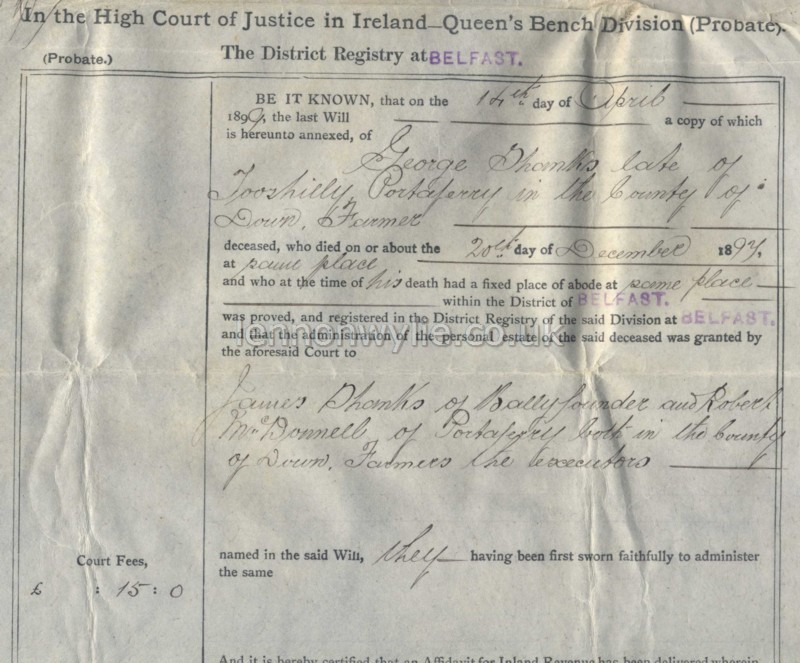 In the High Court of Justice in Ireland—Queen's Bench Division (Probate).
(Probate.) The District Registry at BELFAST.
BE IT KNOWN, that on the 14th day of April
189, the last Will a copy of which
is hereunto annexed, of
George Shanks late of
Tooshilly Portaferry in the County of
Down, Farmer
deceased, who died on or about the 20th day of December 189
at same place
and who at the time of his death had a fixed place of abode at same place
within the District of BELFAST.
was proved, and registered in the District Registry of the said Division at BELFAST.
lennonwylie.co.uk
and that the administration of the personal estate of the said deceased was granted by
the aforesaid Court to
James Shanks of Ballyfounder and Robert
McDonnell of Portaferry both in the County
of Down, Farmers the executors
named in the said Will, they having been first sworn faithfully to administer
the same
Court Fees,
£ : 15 : 0
And it is hereby certified that an Affidavit for Inland Revenue has been delivered wherein